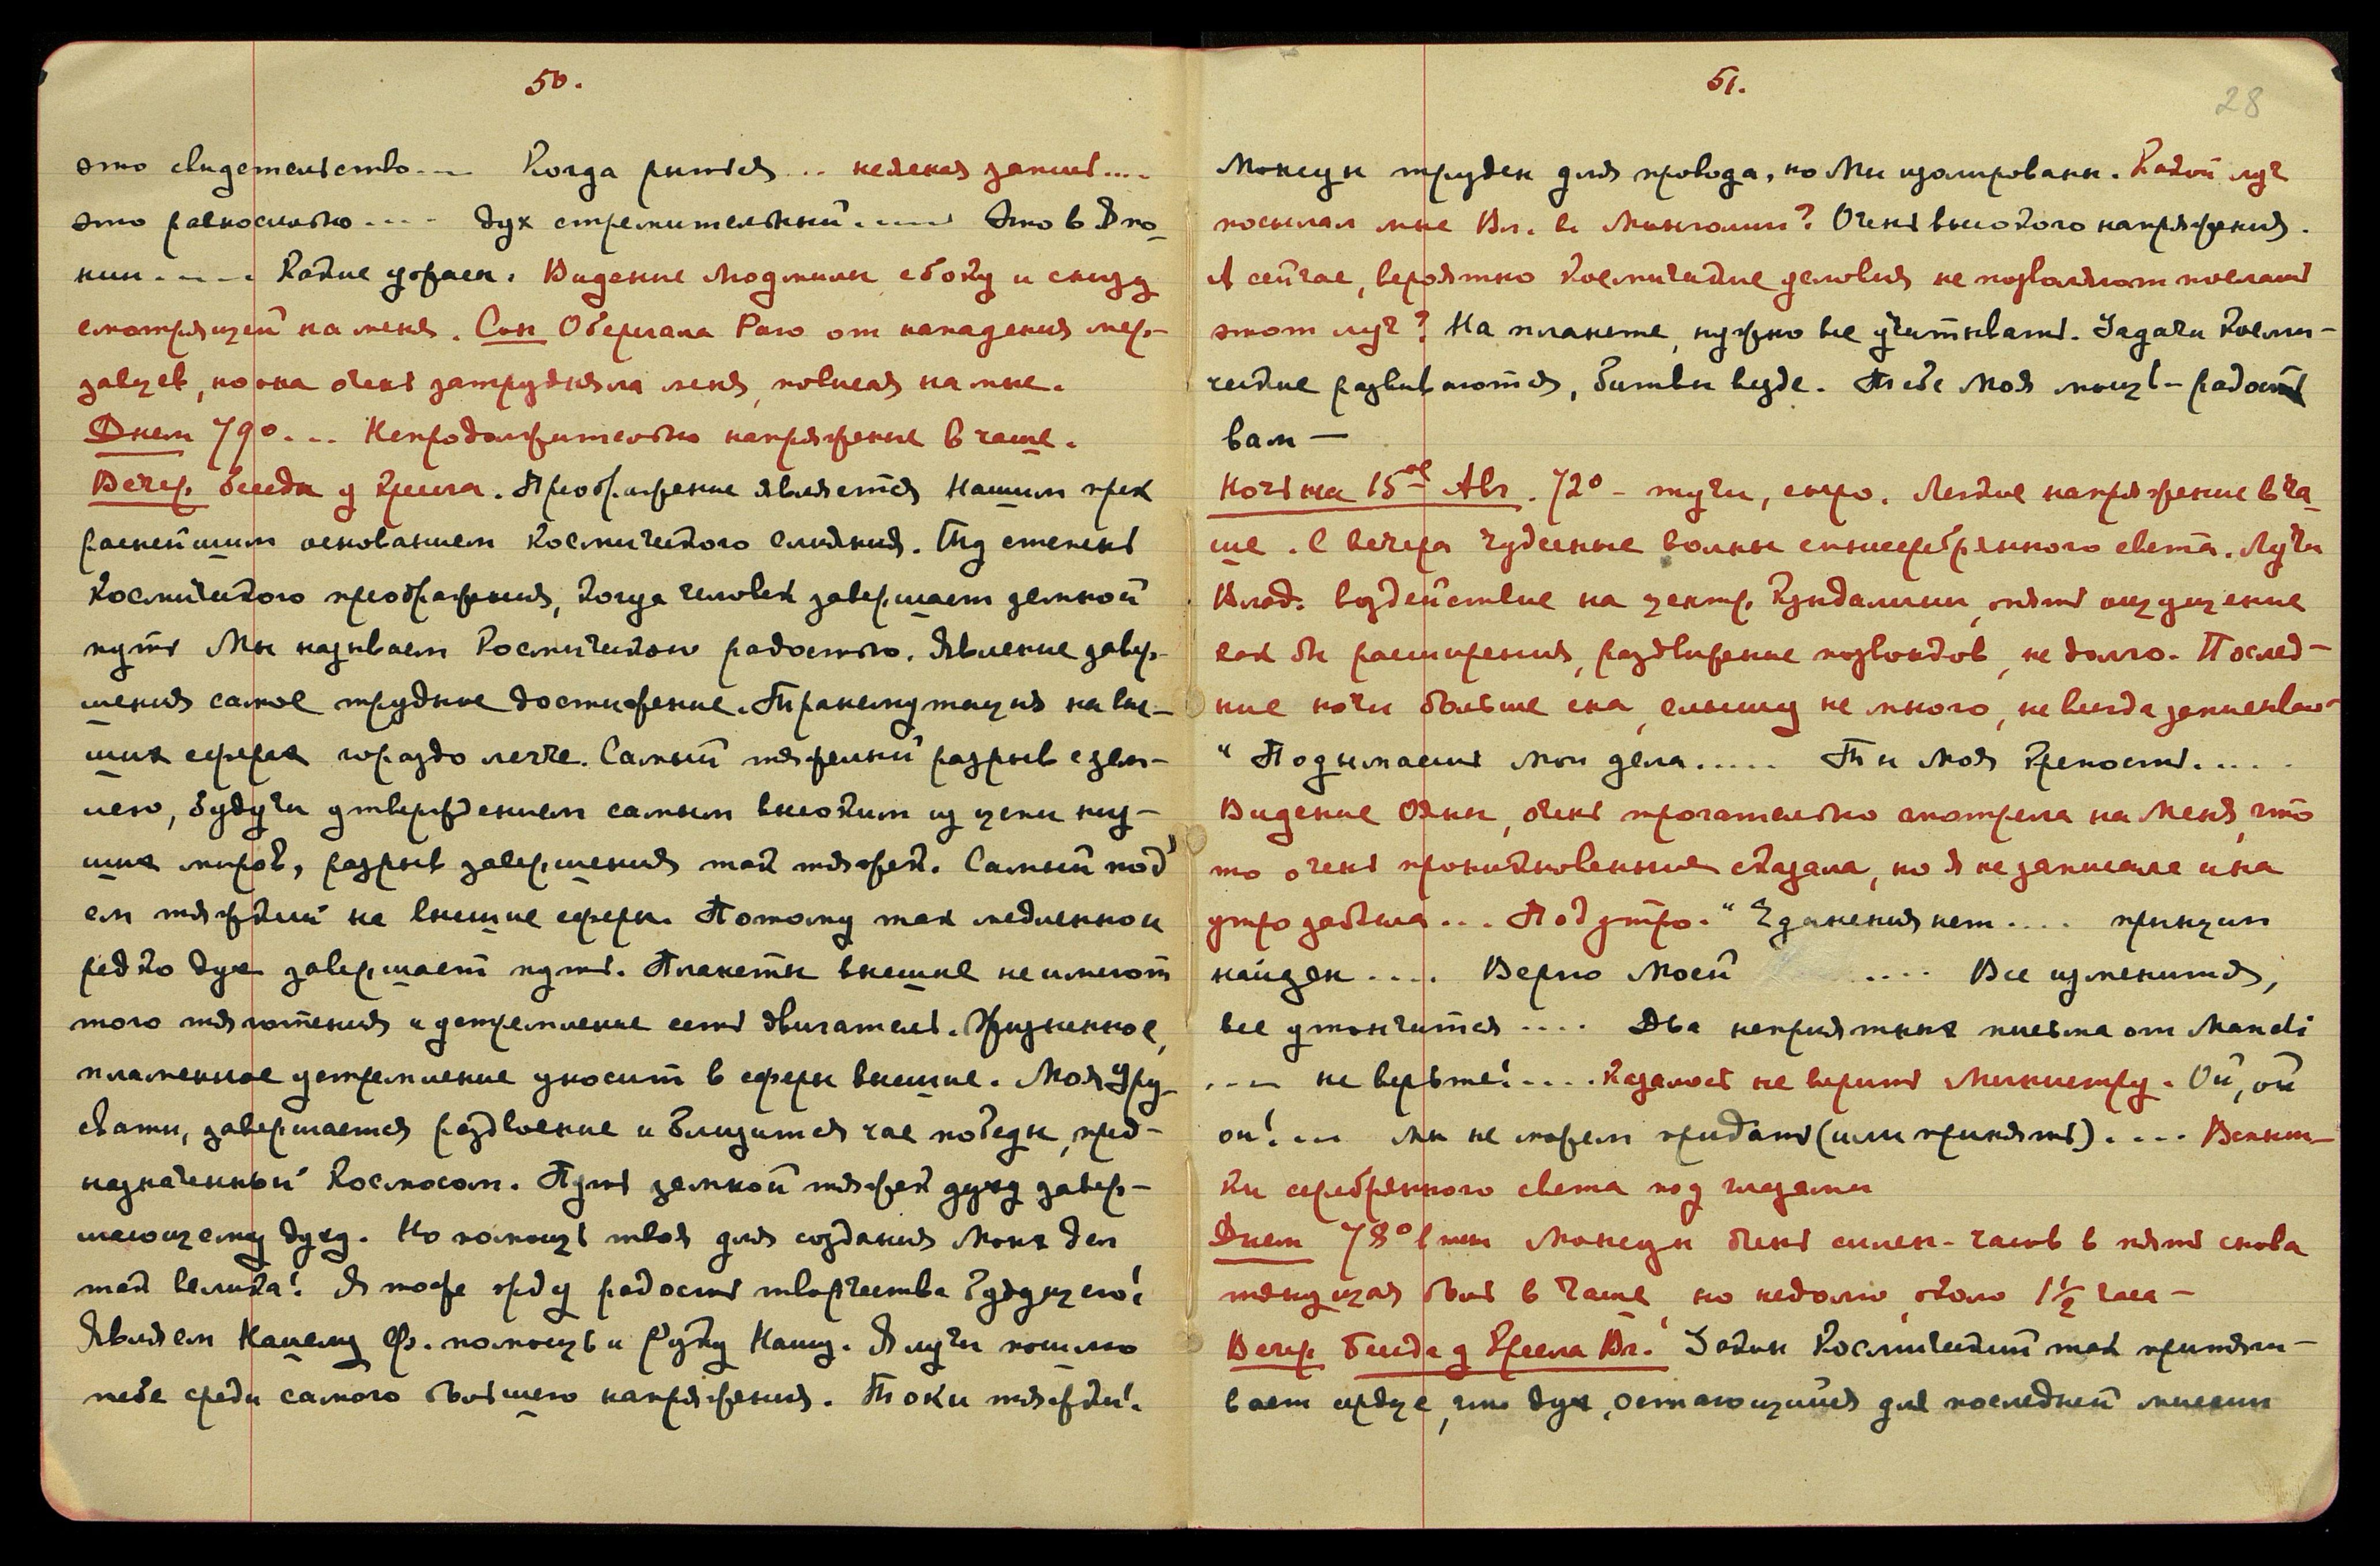 50.
это свидетельство.... Когда рится ... неясная запись....
это равносильно.... Дух стремительный..... Это в Япо-
нии..... Какие ужасы. Видение Людмилы сбоку и снизу
смотрящей на меня. Сон Оберегала Раю от нападения мер-
завцев, но она очень затрудняла меня, повисая на мне.
Днем 79°... Непродолжительно напряжение в чаше.
Вечер. Беседа у Кресла. Преображение является Нашим прек
раснейшим основанием Космического слияния. Ту степень
Космического преображения, когда человек завершает земной
путь Мы называем Космическою радостью. Явление завер-
шения самое трудное достижение. Трансмутация на выс-
ших сферах гораздо легче. Самый тяжелый разрыв с зем-
лею, будучи утверждением самым высоким из цепи низ-
ших миров, разрыв завершения так тяжек. Самый под'
ем тяжкий на внешние сферы. Потому так медленно и
редко дух завершает путь. Планеты внешние не имеют
того тяготения и устремление есть двигатель. Жизненное,
пламенное устремление уносит в сферы внешние. Моя Уру-
свати, завершается раздвоение и близится час победы, пред-
назначенный Космосом. Путь земной тяжек духу завер-
шающему духу. Но помощь твоя для создания Моих дел
так велика! Я тоже жду радость творчества будущего!
Являем Нашему Ф. помощь и Руку Нашу. Я лучи посылаю
тебе среди самого большего напряжения. Токи тяжки!
51.
28
Монсун труден для провода, но Мы изолированы. Какой луч
посылал мне Вл. в Монголии? Очень высокого напряжения.
А сейчас, вероятно Космические условия не позволяют послать
этот луч? На планете, нужно все учитывать. Задачи Косми-
ческие развиваются, битвы везде. Тебе Моя мощь - радость
вам —
Ночь на 15ое Авг. 72° - тучи, сыро. Легкое напряжение в ча-
ше. С вечера чудесные волны синесеребряного света. Лучи
Влад. воздействие на центр Кундалини, опять ощущение
как бы расширения, раздвижение позвонков, не долго. Послед-
ние ночи больше сна, слышу не много, не всегда записываю
" Подымаешь мои дела..... Ты Моя Крепость.....
Видение Ояны, очень трогательно смотрела на Меня, что
то очень проникновенное сказала, но я не записала и на
утро забыла... Под утро. " Единения нет.... принцип
найден.... Верю Моей .... Все изменится,
все утончится.... Два неприятных письма от Mandi
.... не верьте!.... Казалось не верить Министру. Ой, ой
ой!... мы не можем придать (или принять).... Вспыш-
ки серебряного света под глазами
Днем 78° в тени Монсун очень силен - часов в пять снова
тянущая боль в Чаше, но недолго, около 1½ часа -
Вечер. Беседа у Кресла Вл. Закон Космический так притяги-
вает сердце, что дух, остающийся для последней миссии